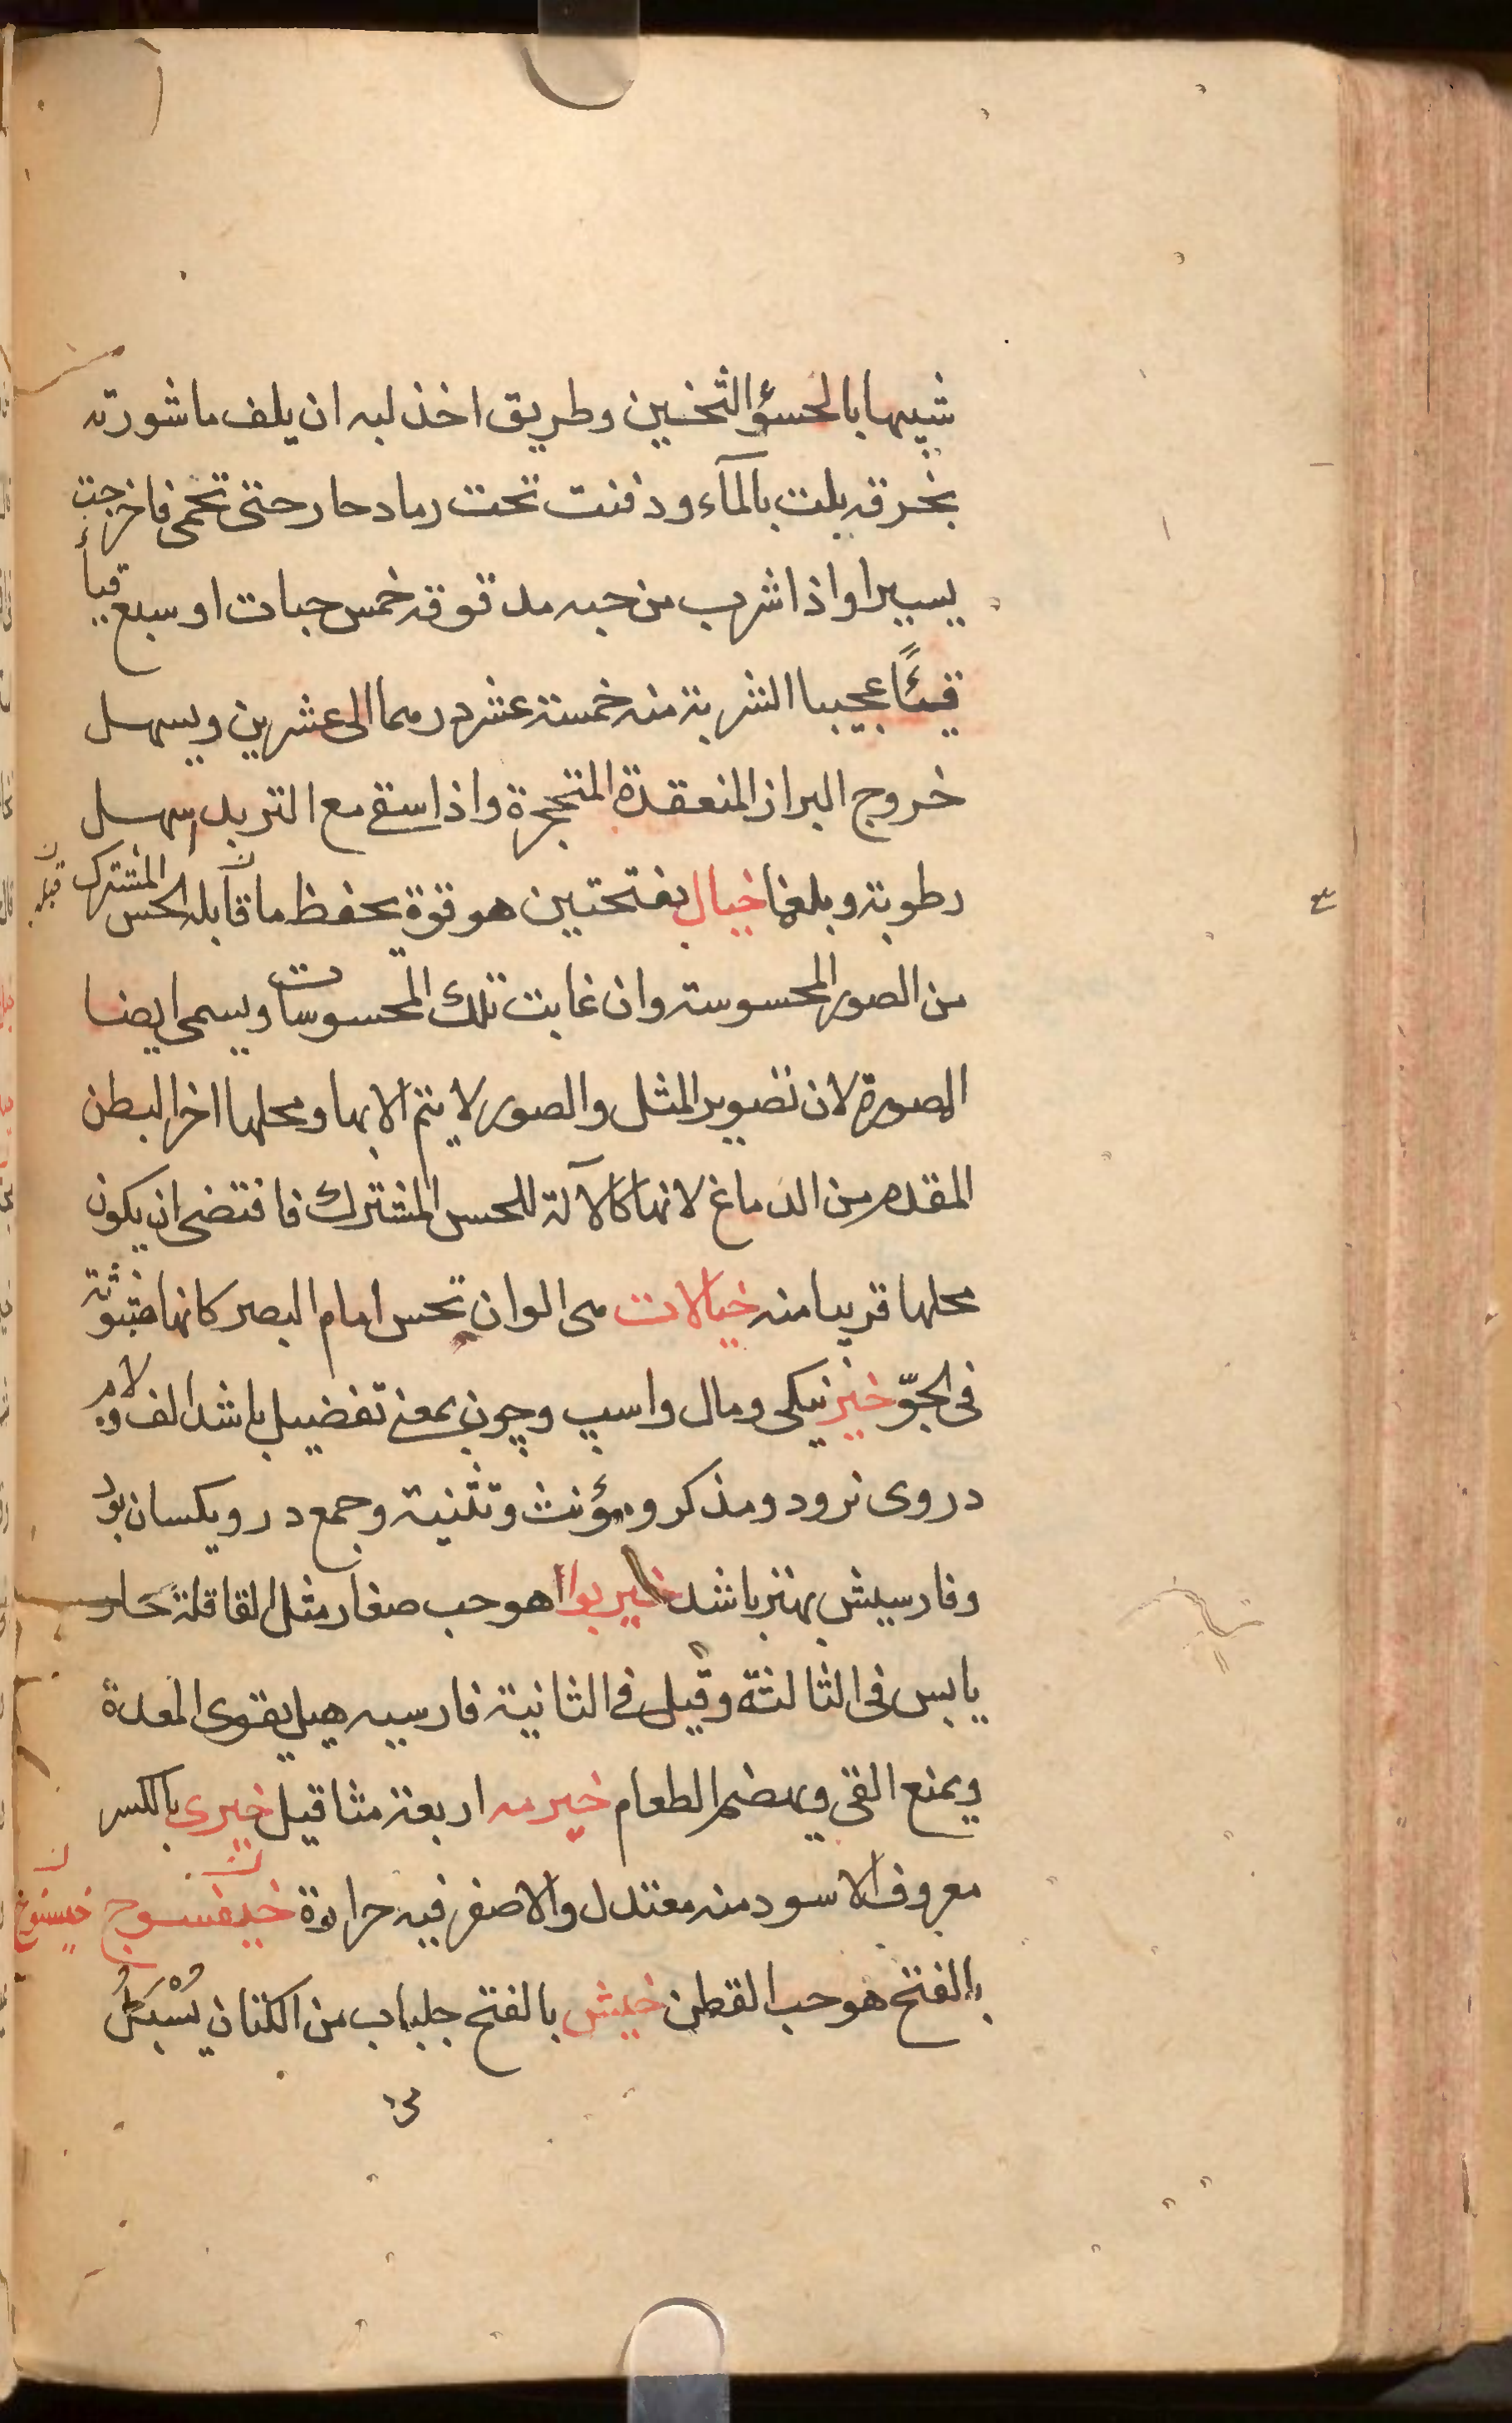 شبيها بالحسؤ الثخين وطريق اخذ لبه ان يلف ماشورته
بخرقه بلت بالمآء ودفنت تحت رماد حار حتى تحمى فاخرجت
يسيرا واذا شرب من حبه مدقوقه خمس حبات او سبع قيأ
قيئًا عجيبا الشربة منه خمسة عشر درهما الى عشرين ويسهل
خروج البراز المنعقدة المتحجرة واذا سقى مع التربد اسهل
رطوبة وبلغما خيال بفتحتين هو قوة يحفظ ما قابله الحس المشترك
قبله
من الصور المحسوسة وان غابت تلك المحسوسات ويسمى ايضا
المصورة لان تصوير المثل والصور لا يتم الا بها ومحلها اخر البطن
المقدم من الدماغ لانها كالآلة للحس المشترك فاقتضى ان يكون
محلها قريبا منه خيالات هى الوان تحس امام البصر كانها مبثوثة
فى الجوّ خير نيكى ومال واسپ وچون بمعنى تفضيل باشد الف ولام
در وى نرود ومذكر ومؤنث وتثنية وجمع در و يكسان بود
وفارسيش بهتر باشد خير بوا هو حب صغار مثل القاقلة حار
يابس فى الثالثة وقيل فى الثانية فارسيه هيل يقوى المعدة
ويمنع القى ويهضم الطعام خيرمه اربعة مثاقيل خيرى بالكسر
معروف الاسود منه معتدل والاصفر فيه حرارة خيفسوج
بالفتح هو حب القطن خيش بالفتح جلباب من الكتان يُسْبَلُ